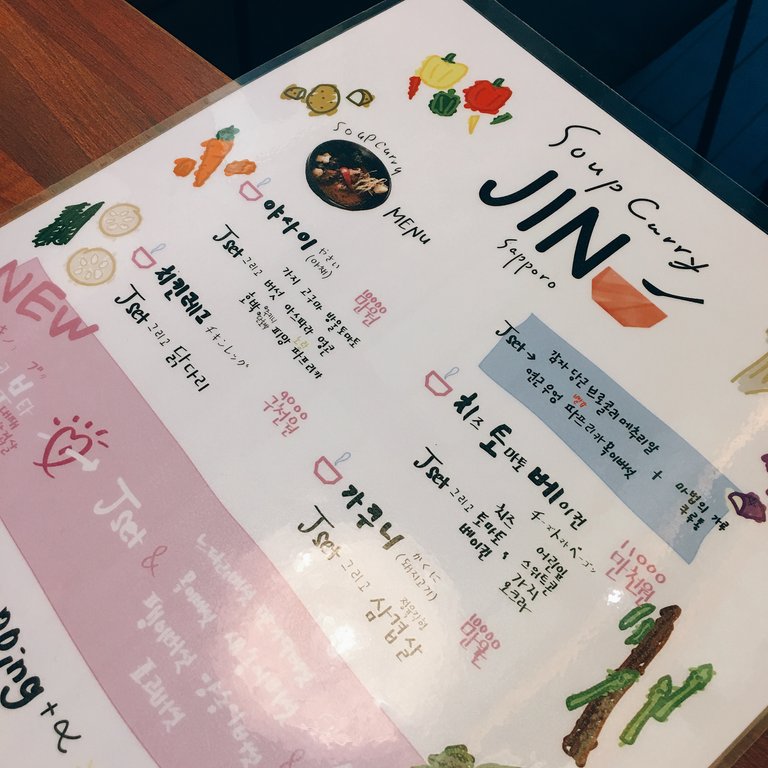 Soup Curry
JIN
Sapporo
Soup Curry
MENU
Jset→ 감자 당근 브로콜리 메추리알
연근 우엉 파프리카 목이버섯
+ 마법의 가루
야사이 やさい
(야채)
Jset 그리고 가지 고구마 방울토마토
버섯 아스파라 연근
호박 피망 파프리카
10000
만원
치킨레그 チキンレッグ
Jset 그리고 닭다리
9000
구천원
치즈 토마토 베이컨
Jset 그리고 치즈 어린잎
토마토 스위트콘
베이컨 가지
오크라
11000
만천원
카쿠니 かくに
(돼지고기)
Jset 그리고 삼겹살
10000
만원
NEW
Jset &
느타리버섯
팽이버섯 양송이버섯
pping +α